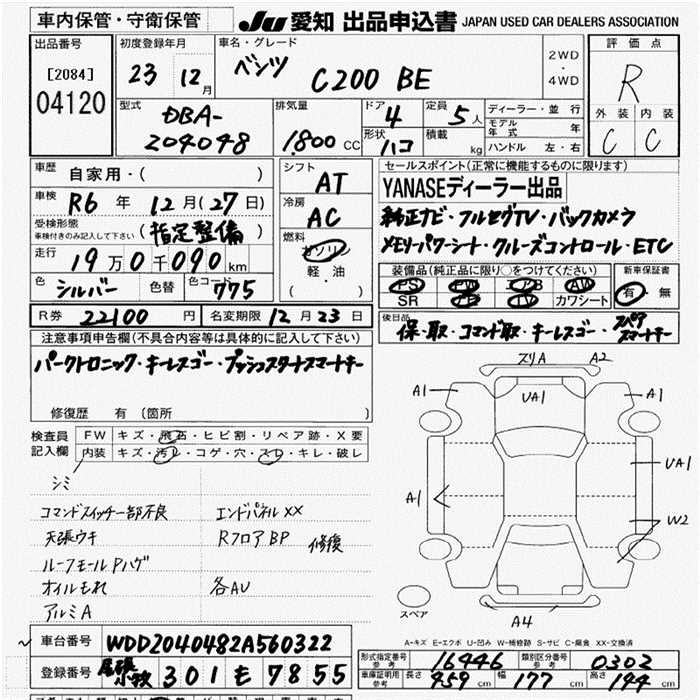 車内保管・守衛保管
JU 愛知 出品申込書 JAPAN USED CAR DEALERS ASSOCIATION
出品番号
[2084]
04120
初度登録年月
23 12月
車名・グレード
ベンツ C200 BE
2WD
・
4WD
評価点
R
外装 内装
C C
型式
DBA-
204048
排気量
1800 CC
ドア 4
形状 ハコ
定員 5人
積載 kg
ディーラー・並行
モデル年式 年
ハンドル 左・右
車歴 自家用・( )
車検 R6年 12月(27日)
受検形態
車検付きのみ記入して下さい
(指定整備)
走行 19万0千090km
色 シルバー 色替 色コード 775
シフト AT
冷房 AC
燃料
ガソリン
軽・油
( )
セールスポイント(正常に機能するものに限ります)
YANASEディーラー出品
純正ナビ・フルセグTV・バックカメラ
メモリーパワーシート・クルーズコントロール・ETC
装備品(純正品に限り○をつけてください)
PS PW エアB AW
SR TV カワシート
新車保証書
有・無
R券 22100円 名変期限 12月23日
後日品
保・取・コマンド取・キーレスゴー・スペア
スマートキー
注意事項申告欄(不具合内容等は具体的に記入して下さい)
パークトロニック・キーレスゴー・プッシュスタートスマートキー
修復歴 有(箇所 )
検査員
記入欄
FW キズ・飛石・ヒビ割・リペア跡・X要
内装 キズ・汚レ・コゲ・穴・スレ・キレ・破レ
シミ
コマンドスイッチ一部不良
天張ウキ
ルーフモールPハゲ
オイルもれ
アルミA
エンドパネルXX
RフロアBP 修復
各AU
スリA A2
A1
UA1
A1
UA1
A1
W2
A4
スペア
A-キズ E-エクボ U-凹み W-補修跡 S-サビ C-腐食 XX-交換済
車台番号 WDD2040482A560322
登録番号 尾張小牧 301 も 7855
形式指定番号
参考
16446
類別区分番号
参考
0302
車庫証明用
参考
長さ 459cm 幅 177cm 高さ 144cm